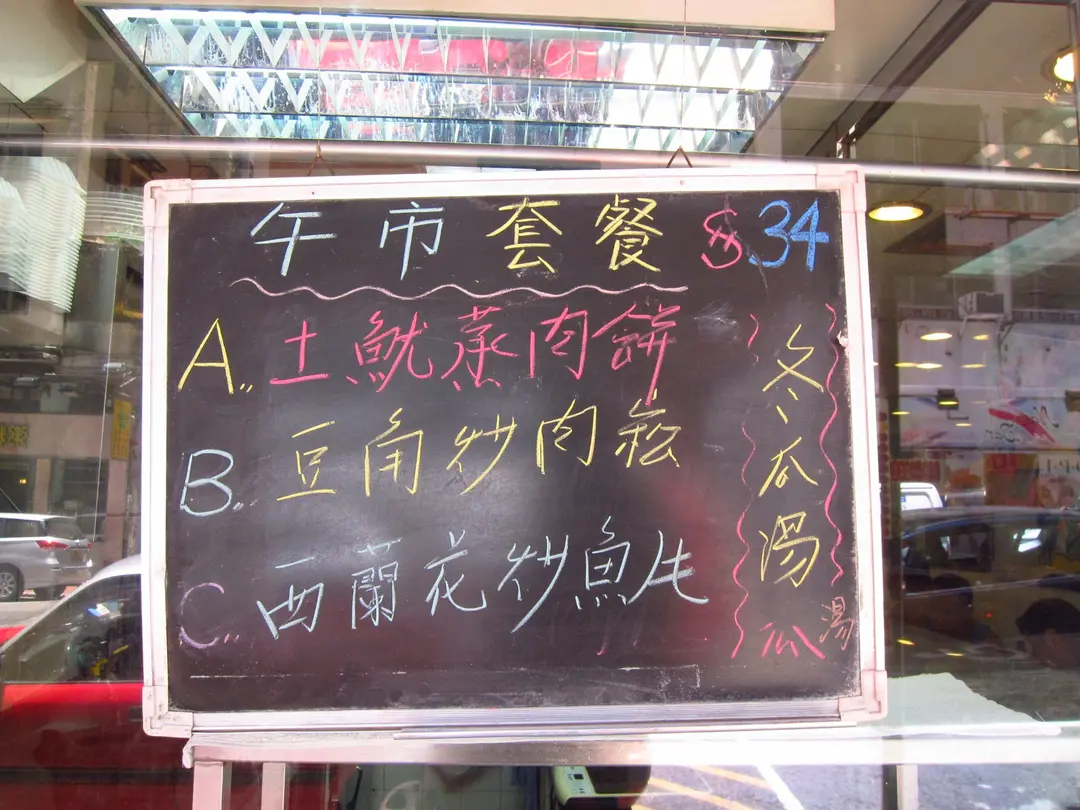 午市套餐 $.34
A.. 土魷蒸肉餅
B.. 豆角炒肉鬆
C.. 西蘭花炒魚
冬瓜湯
瓜湯